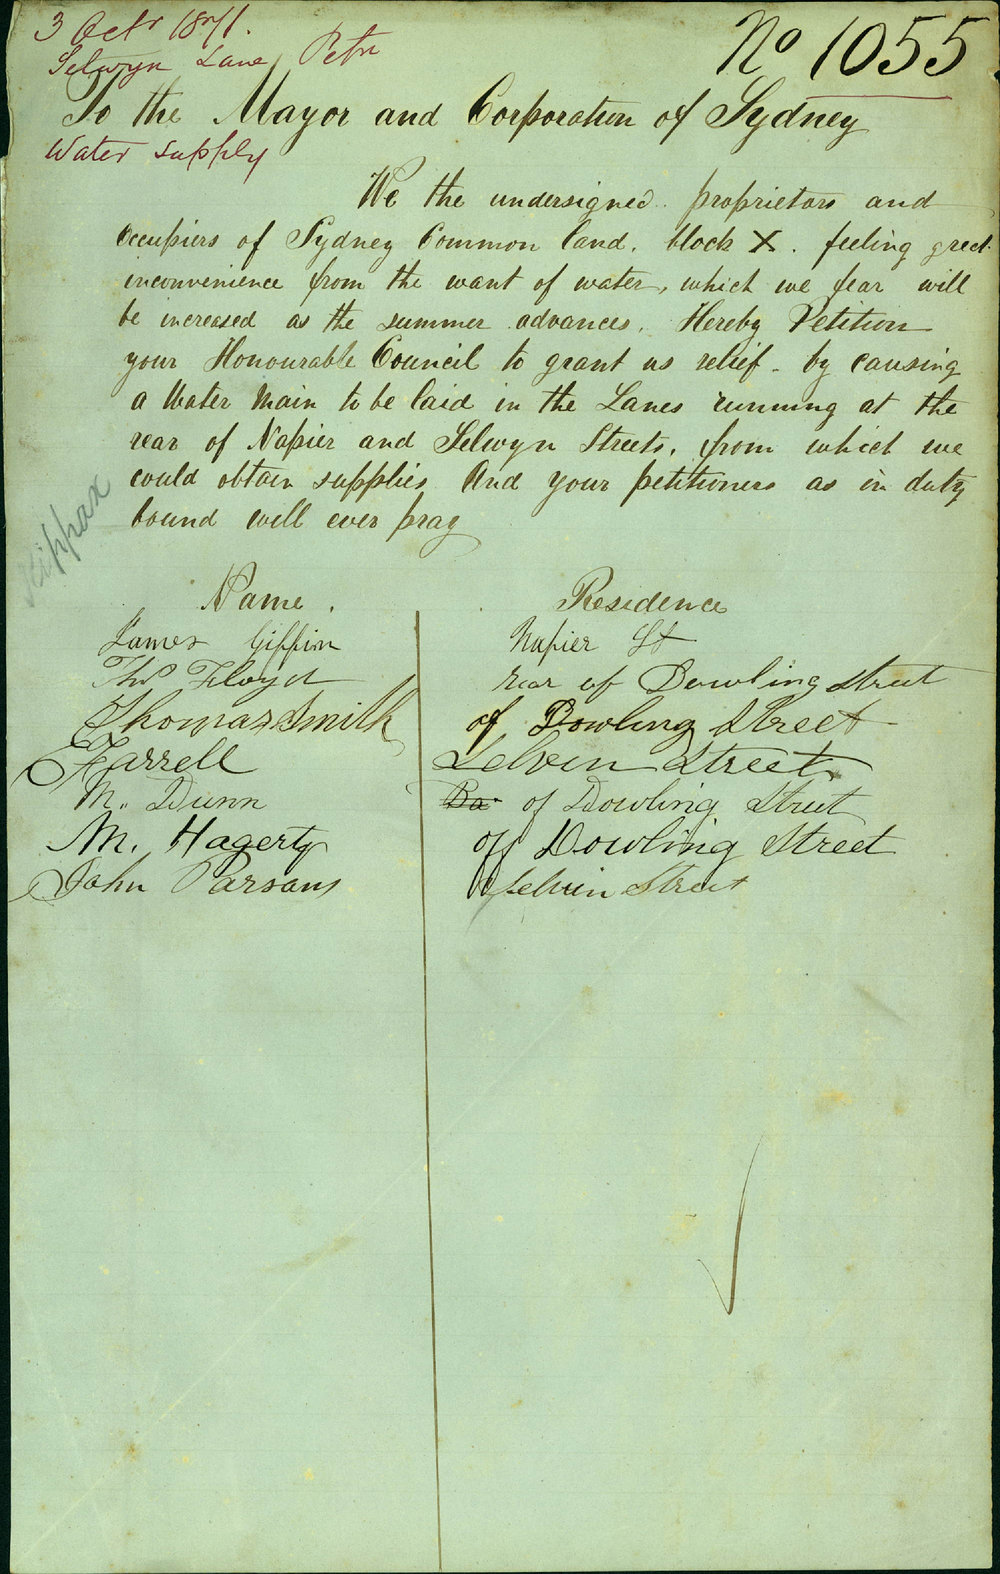 3 Octr 1871.
Selwyn Lane Petn
No 1055
To the Mayor and Corporation of Sydney
Water supply
We the undersigned. proprietors and
occupiers of Sydney Common land. block X. feeling great
inconvenience from the want of water, which we fear will
be increased as the summer advances. Hereby Petition
your Honourable Council to grant us relief - by causing
a Water Main to be laid in the Lanes running at the
rear of Napier and Selwyn Streets, from which we
could obtain supplies. And your petitioners as in duty
bound will ever pray
Kippax
Name. Residence
James Giffin Napier St
Thos Floyd rear of Dowling Street
Thomas Smith of Dowling Street
Farrell Selven Street
M. Dunn of Dowling Street
M. Hagerty off Dowling Street
John Parsons Selvin Street